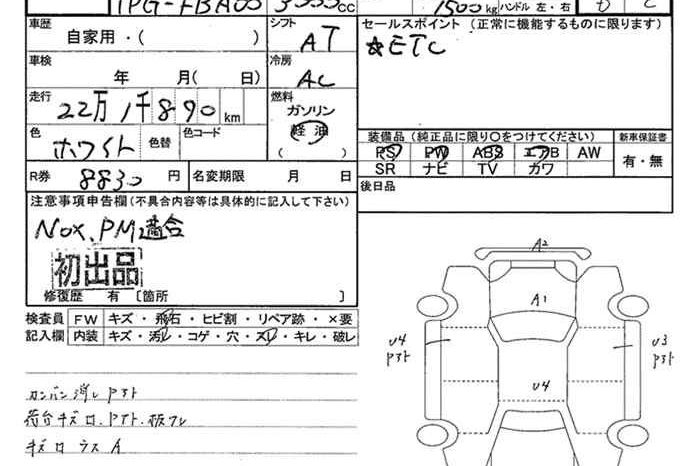 TPG-FBA00 cc 1500kg ハンドル 左・右
車歴 自家用・( )
シフト AT
セールスポイント (正常に機能するものに限ります)
☆ETC
車検 年 月( 日)
冷房 AC
走行 22万1千890km
燃料 ガソリン 軽油 ( )
色 ホワイト 色替 色コード
装備品 (純正品に限り○をつけてください) 新車保証書
PS PW ABS エアB AW 有・無
SR ナビ TV カワ
R券 8830円 名変期限 月 日
後日品
注意事項申告欄(不具合内容等は具体的に記入して下さい)
NOX、PM適合
初出品
修復歴 有 [箇所 ]
検査員 FW キズ・飛石・ヒビ割・リペア跡・×要
記入欄 内装 キズ・汚レ・コゲ・穴・スレ・キレ・破レ
カンバン消しアト
荷台キズロ、アト・板ワレ
キズロ ラス A
A2
A1
U4 アト
U3 アト
U4